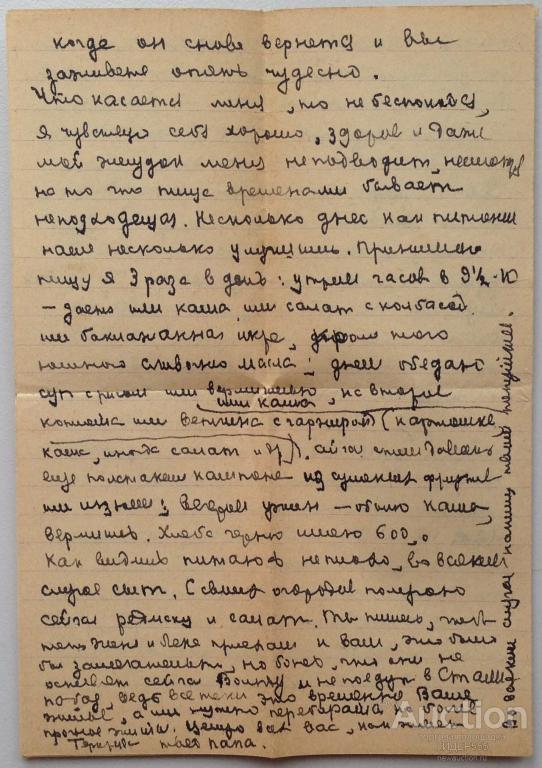 когда он снова вернется и вы
заживете опять чудесно.
Что касается меня, то не беспокойся,
я чувствую себя хорошо, здоров и даже
мой желудок меня не подводит, несмотря
на то что пища временами бывает
неподходящая. Несколько дней как питание
наше несколько улучшили. Принимаю
пищу я 3 раза в день: утром часов в 9½-10
— дают или каша или салат с колбасой
или баклажанная икра, кроме того
немного сливочного масла; днем обедаю
суп с рисом или вермишелью, на второе
или каша
котлета или ветчина с гарниром (картошка,
каша, иногда салат и др). сейчас стали давать
еще полстакана компота из сушеных фруктов
или изюма; вечером ужин — обычно каша,
вермишель. Хлеба черного имею 600 г.
Как видишь питаюсь неплохо, во всяком
случае сыт. С своих огородов получаю
сейчас редиску и салат. Ты пишешь, чтобы
тетя Женя и Леня приехали к вам, это было
бы замечательно, но боюсь, что они не
оставят сейчас и не поедут в Сталин-
абад, ведь все таки это временно Ваше
жилье, а им нужно перебираться на более
прочное жилье. Целую всех вас,
твой папа.
во всяком случае напишу
Auction
newauction.ru